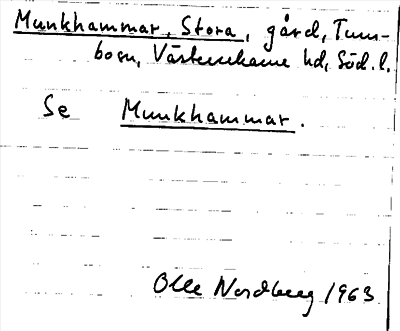 Munkhammar, Stora, gård, Tum-
bosn, Västerrekarne hd, Söd. l.
Se Munkhammar.
Olle Nordberg 1963